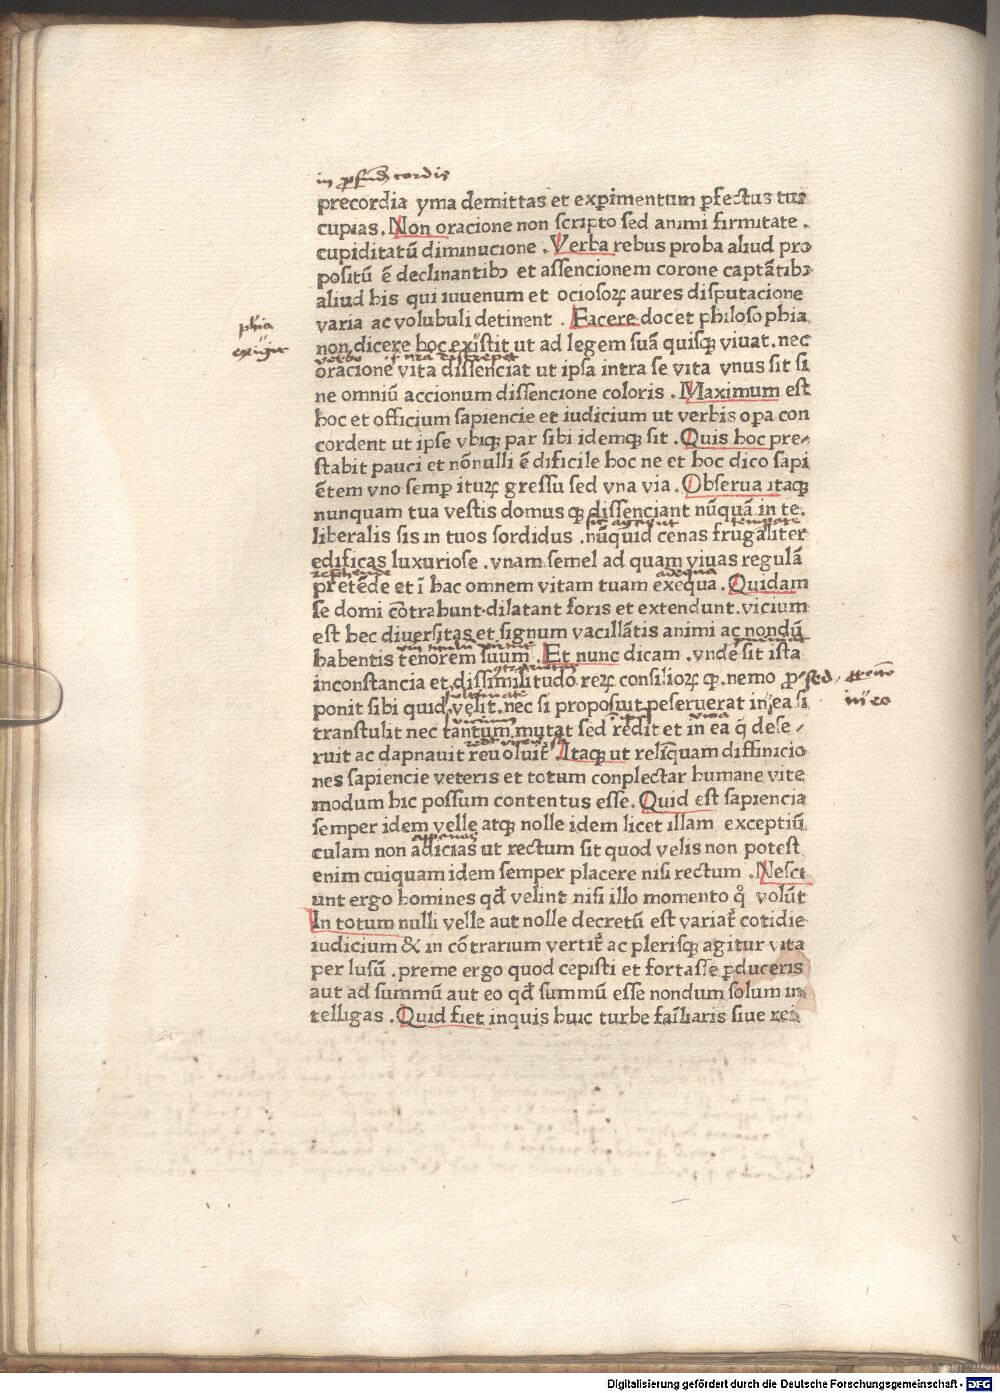 in ꝓfūdū cordis
precordia yma demittas et exꝑimentum ꝓfectus tui
cupias. Non oracione non scripto sed animi firmitate .
cupiditatū diminucione . Verba rebus proba aliud pro
positū ē declinantibꝫ et assencionem corone captātibꝫ
aliud his qui iuuenum et ociosoꝝ aures disputacione
varia ac volubuli detinent . Facere docet philosophia
phia
non dicere hoc exiistit ut ad legem suā quisqꝫ viuat . nec
exigit
oracione vita dissenciat ut ipsa intra se vita vnus sit si
ne omniū accionum dissencione coloris . Maximum est
hoc et officium sapiencie et iudicium ut verbis oꝑa con
cordent ut ipse vbiqꝫ par sibi idemqꝫ sit . Quis hoc pre⸗
stabit pauci et nōnulli ē dificile hoc ne et hoc dico sapi
ētem vno semꝑ ituꝝ gressu sed vna via . Obserua itaqꝫ
nunquam tua vestis domus qꝫ dissenciant nūquā in te.
liberalis sis in tuos sordidus . nūquid cenas frugaliter
edificas luxuriose . vnam semel ad quam viuas regulā
pretēde et ī hac omnem vitam tuam exequa . Quidam
adequa
se domi cōtrahunt·dilatant foris et extendunt . vicium
est hec diuersitas et signum vacillātis animi ac nondū
habentis tenorem suum . Et nunc dicam . vnde sit ista
inconstancia et dissimilitudo reꝝ consilioꝝ qꝫ . nemo ꝓ⸗
sed
ponit sibi quid velit . nec si proposuit peseruerat in ea si
in eo
transtulit nec tantum mutat sed redit et in ea q̄ dese⸗
ruit ac dapnauit reuoluit᷑ . Itaqꝫ ut relīquam diffinicio
nes sapiencie veteris et totum conplectar humane vite
modum hic possum contentus esse. Quid est sapiencia
semper idem velle atqꝫ nolle idem licet illam exceptiū
culam non adicias ut rectum sit quod velis non potest
enim cuiquam idem semper placere nisi rectum . Nesci
unt ergo homines qđ velint nisi illo momento q̊ volūt
In totum nulli velle aut nolle decretū est variat᷑ cotidie
iudicium & in cōtrarium vertit᷑ ac plerisqꝫ agitur vita
per lusū . preme ergo quod cepisti et fortasse ꝑduceris
aut ad summū aut eo qđ summū esse nondum solum in
telligas . Quid fiet inquis huic turbe fam̄iliaris siue rei
Digitalisierung gefördert durch die Deutsche Forschungsgemeinschaft - DFG